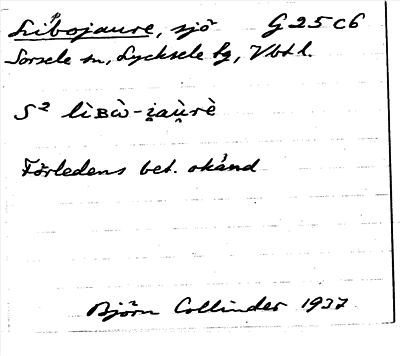 Libojaure, sjö G25c6
Sorsele sn, Lycksele lg, Vbtl.
S² lìʙὼ-i̯au̯rè
Förledens bet. okänd
Björn Collinder 1937